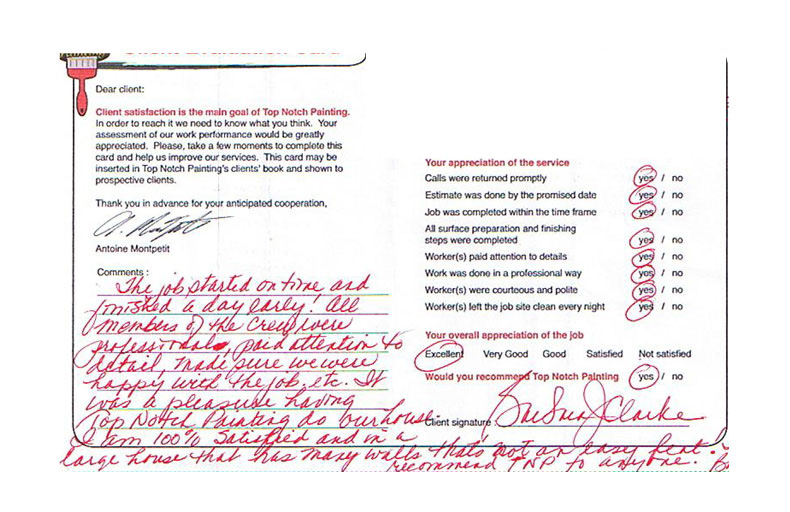 Dear client:
Client satisfaction is the main goal of Top Notch Painting.
In order to reach it we need to know what you think. Your
assessment of our work performance would be greatly
appreciated. Please, take a few moments to complete this
card and help us improve our services. This card may be
inserted in Top Notch Painting's clients' book and shown to
prospective clients.
Thank you in advance for your anticipated cooperation,
A. Montpetit
Antoine Montpetit
Comments :
The job started on time and
finished a day early! All
members of the crew were
professionals, paid attention to
detail, made sure we were
happy with the job, etc. It
was a pleasure having
Top Notch Painting do our house.
I am 100% satisfied and in a
large house that has many walls that's not an easy feat.
recommend TNP to anyone.
Your appreciation of the service
Calls were returned promptly yes / no
Estimate was done by the promised date yes / no
Job was completed within the time frame yes / no
All surface preparation and finishing
steps were completed yes / no
Worker(s) paid attention to details yes / no
Work was done in a professional way yes / no
Worker(s) were courteous and polite yes / no
Worker(s) left the job site clean every night yes / no
Your overall appreciation of the job
Excellent Very Good Good Satisfied Not satisfied
Would you recommend Top Notch Painting yes / no
Client signature : Barbara J Clarke